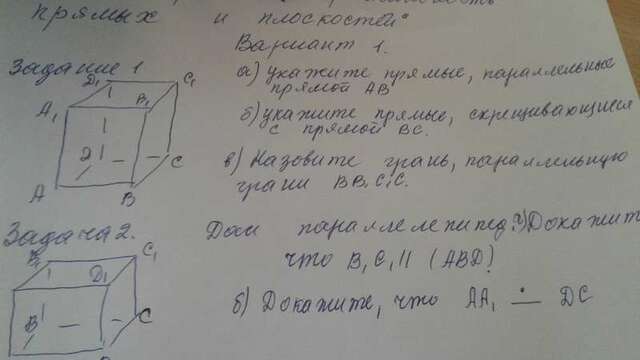 прямых и плоскостей.
Вариант 1.
Задание 1
а) укажите прямые, параллельные
прямой AB
б) укажите прямые, скрещивающиеся
с прямой BC.
в) Назовите грань, параллельную
грани BB₁C₁C.
D₁ C₁
A₁ B₁
D C
A B
Задача 2. Дан параллелепипед. а) Докажит
что B₁C₁ || (ABD)
б) Докажите, что AA₁ ∸ DC
B₁ C₁
D₁
B C